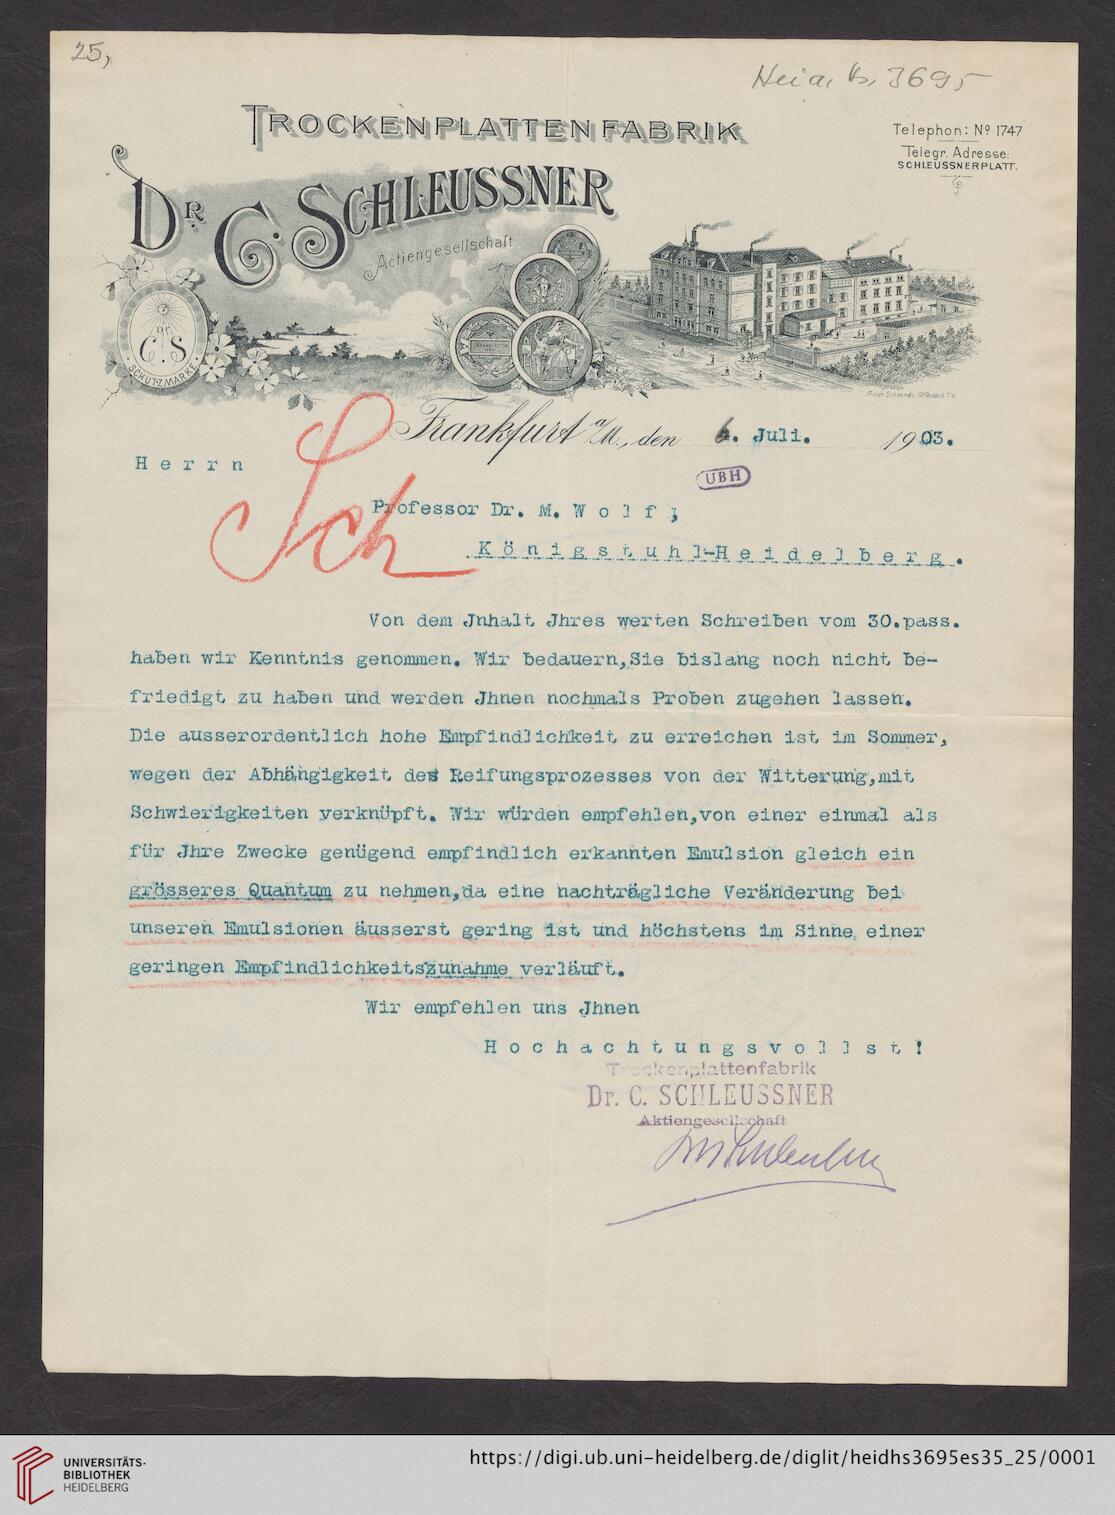 25,
Heid. Hs. 3695
TROCKENPLATTENFABRIK
DR. C. SCHLEUSSNER
Actiengesellschaft
Telephon: No 1747
Telegr. Adresse:
SCHLEUSSNERPLATT.
Dr.
C. S.
SCHUTZMARKE
Frankfurt a/M., den 6. Juli. 1903.
Herrn
UBH
Sch
Professor Dr. M. Wolf;
Königstuhl-Heidelberg.
Von dem Jnhalt Jhres werten Schreiben vom 30.pass.
haben wir Kenntnis genommen. Wir bedauern,Sie bislang noch nicht be-
friedigt zu haben und werden Jhnen nochmals Proben zugehen lassen.
Die ausserordentlich hohe Empfindlichkeit zu erreichen ist im Sommer,
wegen der Abhängigkeit des Reifungsprozesses von der Witterung,mit
Schwierigkeiten verknüpft. Wir würden empfehlen,von einer einmal als
für Jhre Zwecke genügend empfindlich erkannten Emulsion gleich ein
grösseres Quantum zu nehmen,da eine nachträgliche Veränderung bei
unseren Emulsionen äusserst gering ist und höchstens im Sinne einer
geringen Empfindlichkeitszunahme verläuft.
Wir empfehlen uns Jhnen
Hochachtungsvollst!
Trockenplattenfabrik
Dr. C. SCHLEUSSNER
Aktiengesellschaft
UNIVERSITÄTS-
BIBLIOTHEK
HEIDELBERG
https://digi.ub.uni-heidelberg.de/diglit/heidhs3695es35_25/0001